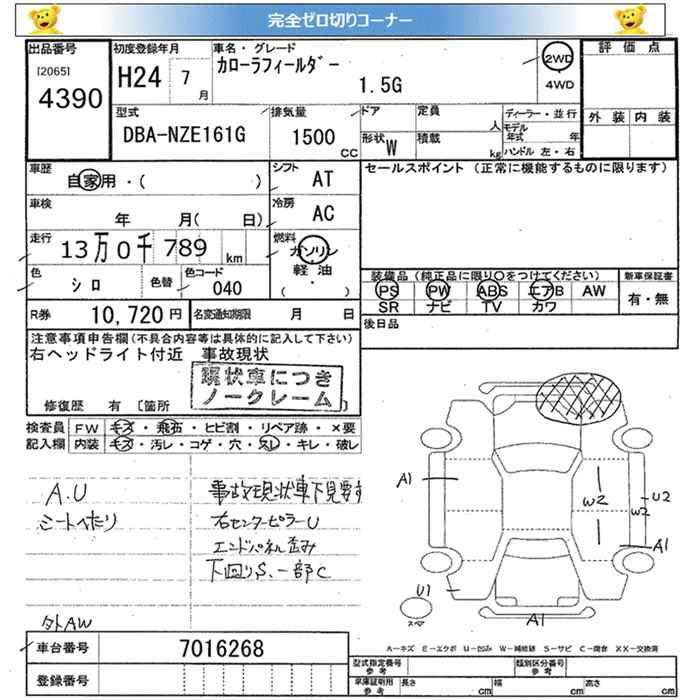 完全ゼロ切りコーナー
出品番号
[2065]
4390
初度登録年月
H24 7月
車名・グレード
カローラフィールダー
1.5G
2WD
4WD
評価点
外装 内装
型式
DBA-NZE161G
排気量
1500 CC
ドア
定員 人
形状 W
積載 kg
ディーラー・並行
モデル年式 年
ハンドル 左・右
車歴
自家用・( )
シフト AT
セールスポイント (正常に機能するものに限ります)
車検
年 月( 日)
冷房 AC
走行
13万0千789 km
燃料
ガソリン
軽油
( ・ )
色 シロ
色替
色コード 040
装備品 (純正品に限り○をつけてください)
PS PW ABS エアB AW
SR ナビ TV カワ
新車保証書
有・無
R券 10,720円
名変通知期限 月 日
後日品
注意事項申告欄 (不具合内容等は具体的に記入して下さい)
右ヘッドライト付近 事故現状
現状車につき
ノークレーム
修復歴 有 [箇所 ]
検査員記入欄
FW キズ・飛石・ヒビ割・リペア跡・×要
内装 キズ・汚レ・コゲ・穴・スレ・キレ・破レ
A.U
シートへたり
事故現状車下見要す
右センターピラーU
エンドパネル歪み
下回りS、一部C
外AW
A1
W2
U2
W2
A1
U1
A1
スペア
A-キズ E-エクボ U-凹み W-補修跡 S-サビ C-腐食 XX-交換済
車台番号 7016268
登録番号
型式指定番号 参考
類別区分番号 参考
車庫証明用 参考
長さ cm
幅 cm
高さ cm